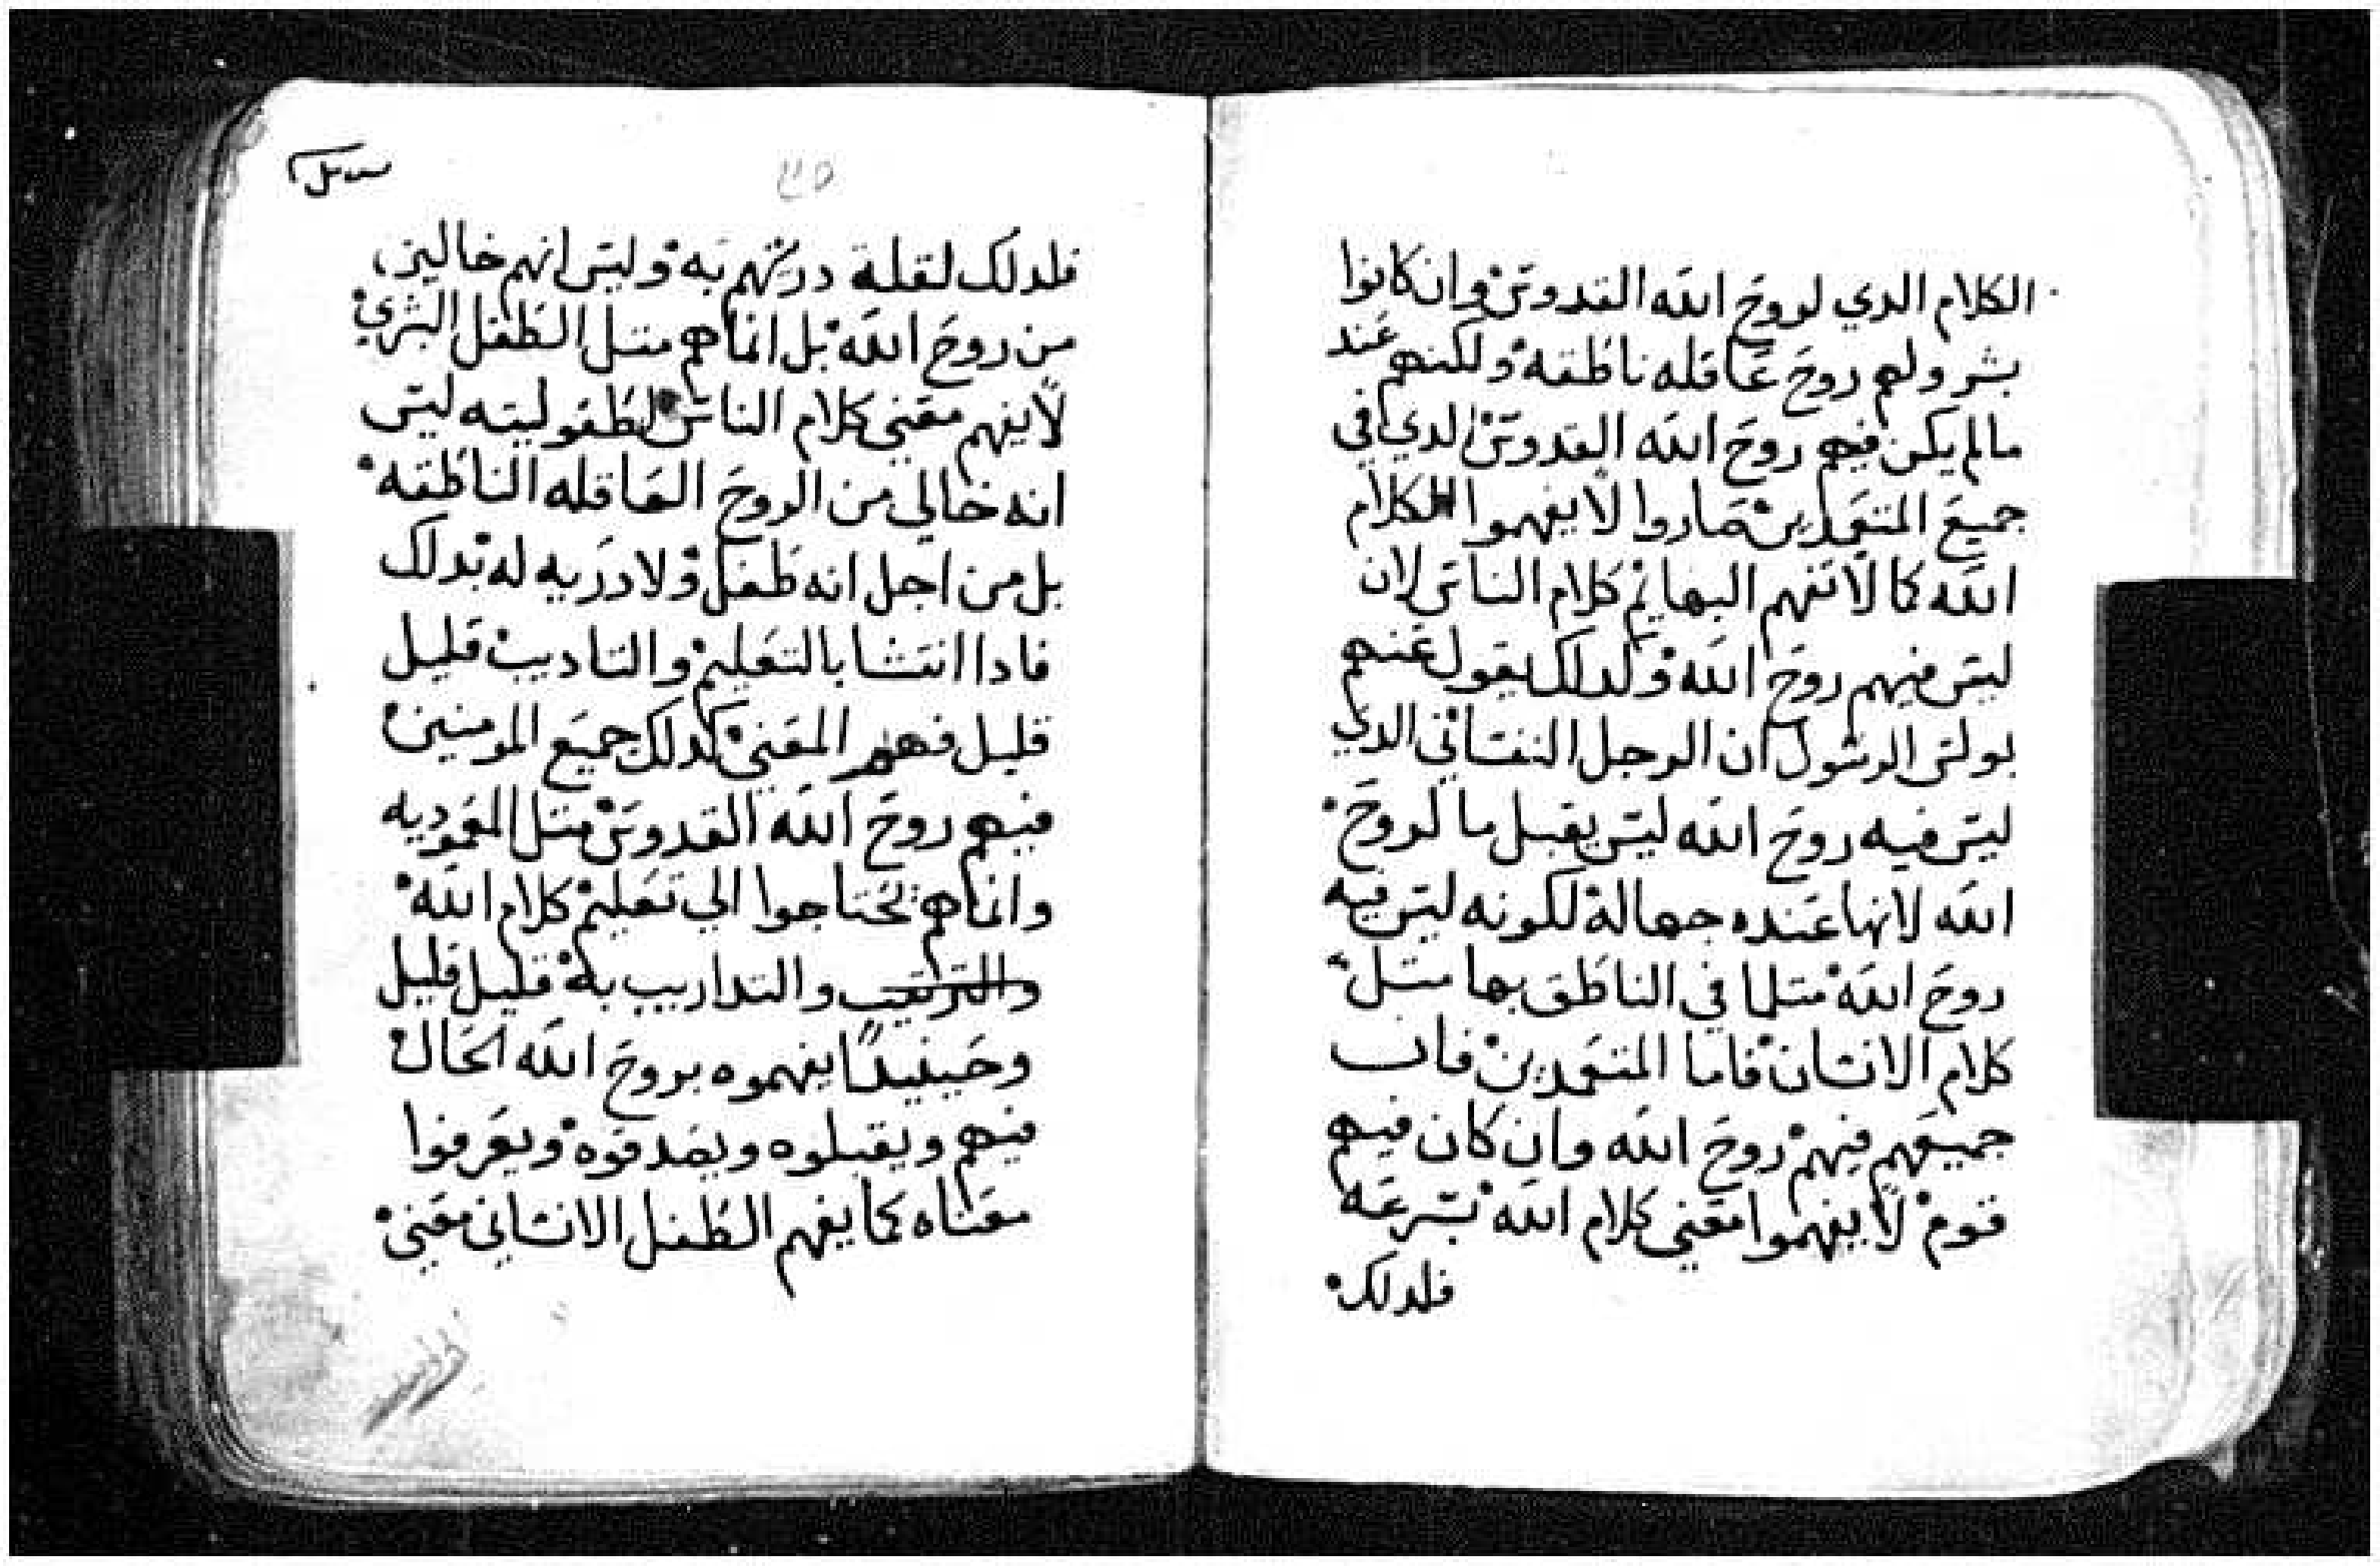 الكلام الدي لروح الله القدوس وان كانوا
بشر ولهم روح عاقله ناطقه ولكنهم عند
مالم يكن فيهم روح الله القدوس الدي في
جميع المتعمدين صاروا لا يفهموا الكلام
الله كما لا تفهم البهايم كلام الناس لان
ليس فيهم روح الله ولدلك يقول عنهم
بولس الرسول ان الرجل النفساني الدي
ليس فيه روح الله ليس يقبل ما لروح
الله لانها عنده جهالة لكونه ليس فيه
روح الله متلما في الناطق بها متل
كلام الانسان فاما المتعمدين فان
جميعهم فيهم روح الله وان كان فيهم
قوم لا يفهموا معني كلام الله بسرعه
فلدلك
٣٥
فلدلك لقلة دربتهم به وليس انهم خالين
من روح الله بل انما هم متل الطفل البشري
لا يفهم معني كلام الناس لطفوليته ليس
انه خالي من الروح العاقله الناطقه
بل من اجل انه طفل ولا دربه له بدلك
فادا انتشا بالتعليم والتاديب قليل
قليل فهم المعني كدلك جميع المومنين
فيهم روح الله القدوس متل المعموديه
وانما هم يحتاجوا الي تعليم كلام الله
والتداريب به قليل قليل
وحينيدا يفهموه بروح الله الحال
فيهم ويقبلوه ويصدقوه ويعرفوا
معناه كما يفهم الطفل الانساني معني